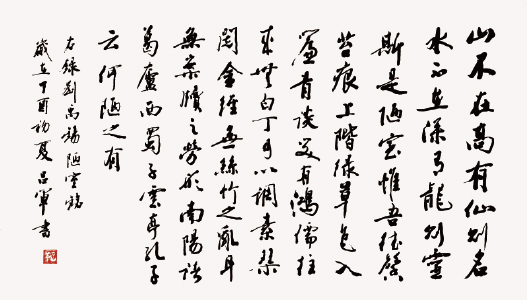 山不在高有仙則名
水不在深有龍則靈
斯是陋室惟吾德馨
苔痕上階綠草色入
簾青談笑有鴻儒往
來無白丁可以調素琴
閱金經無絲竹之亂耳
無案牘之勞形南陽諸
葛廬西蜀子雲亭孔子
云何陋之有
右錄劉禹錫陋室銘
歲在丁酉初夏呂軍書